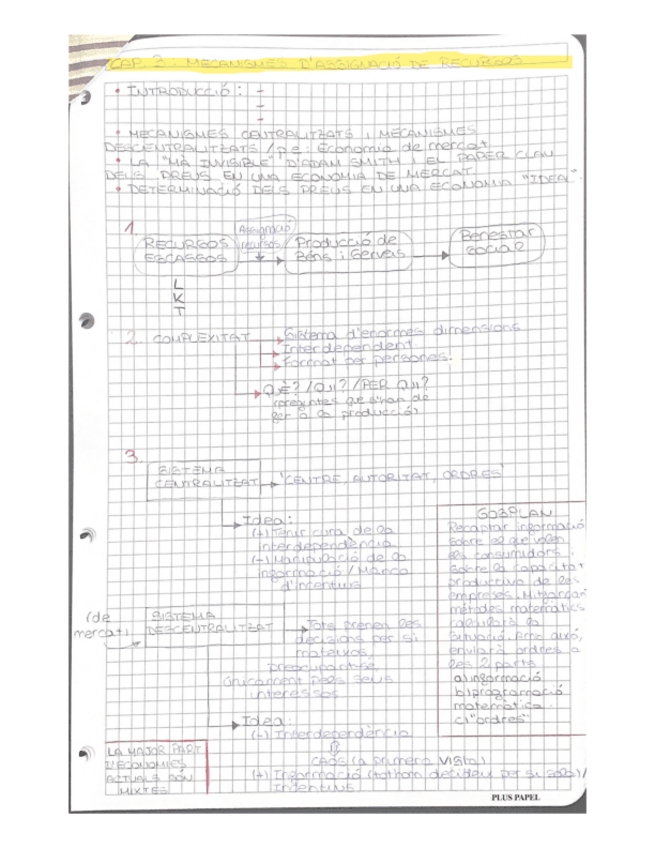 CAP. 2. MECANISMES D'ASSIGNACIÓ DE RECURSOS
• INTRODUCCIÓ: -
-
-
• MECANISMES CENTRALITZATS I MECANISMES
DESCENTRALITZATS / p.e.: Economia de mercat
• LA "MÀ INVISIBLE" D'ADAM SMITH I EL PAPER CLAU
DELS PREUS EN UNA ECONOMIA DE MERCAT
• DETERMINACIÓ DELS PREUS EN UNA ECONOMIA "IDEAL".
1.
RECURSOS
ESCASSOS
Assignació
recursos
Producció de
Béns i Serveis
Benestar
social
L
K
T
2. COMPLEXITAT
Sistema d'enormes dimensions
Interdependent
Format per persones.
QUÈ? / QUI? / PER QUI?
(preguntes que s'han de
fer a la producció)
3.
SISTEMA
CENTRALITZAT
"CENTRE, AUTORITAT, ORDRES"
Idea:
(+) Tenir cura de la
interdependència
(-) Manipulació de la
informació / Manca
d'incentius
GOSPLAN
Recaptar informació
sobre el que volen
els consumidors.
Sobre la capacitat
productiva de les
empreses. Mitjançant
mètodes matemàtics
calcularà la
situació. Amb això,
enviarà ordres a
les 2 parts
a) informació
b) programació
matemàtica.
c) "ordres"
(de
mercat)
SISTEMA
DESCENTRALITZAT
Tots prenen les
decisions per si
mateixos,
preocupant-se
únicament pels seus
interessos
Idea:
(-) Interdependència
CAOS (a primera vista)
(+) Informació (tothom decideix per si sol) /
Incentius
LA MAJOR PART
D'ECONOMIES
ACTUALS SÓN
MIXTES
PLUS PAPEL